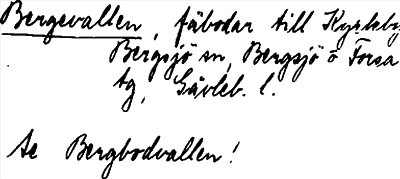 Bergevallen, fäbodar till Kyrkby,
Bergsjö sn, Bergsjö o Forsa
tg, Gävleb. l.
se Bergbodvallen!